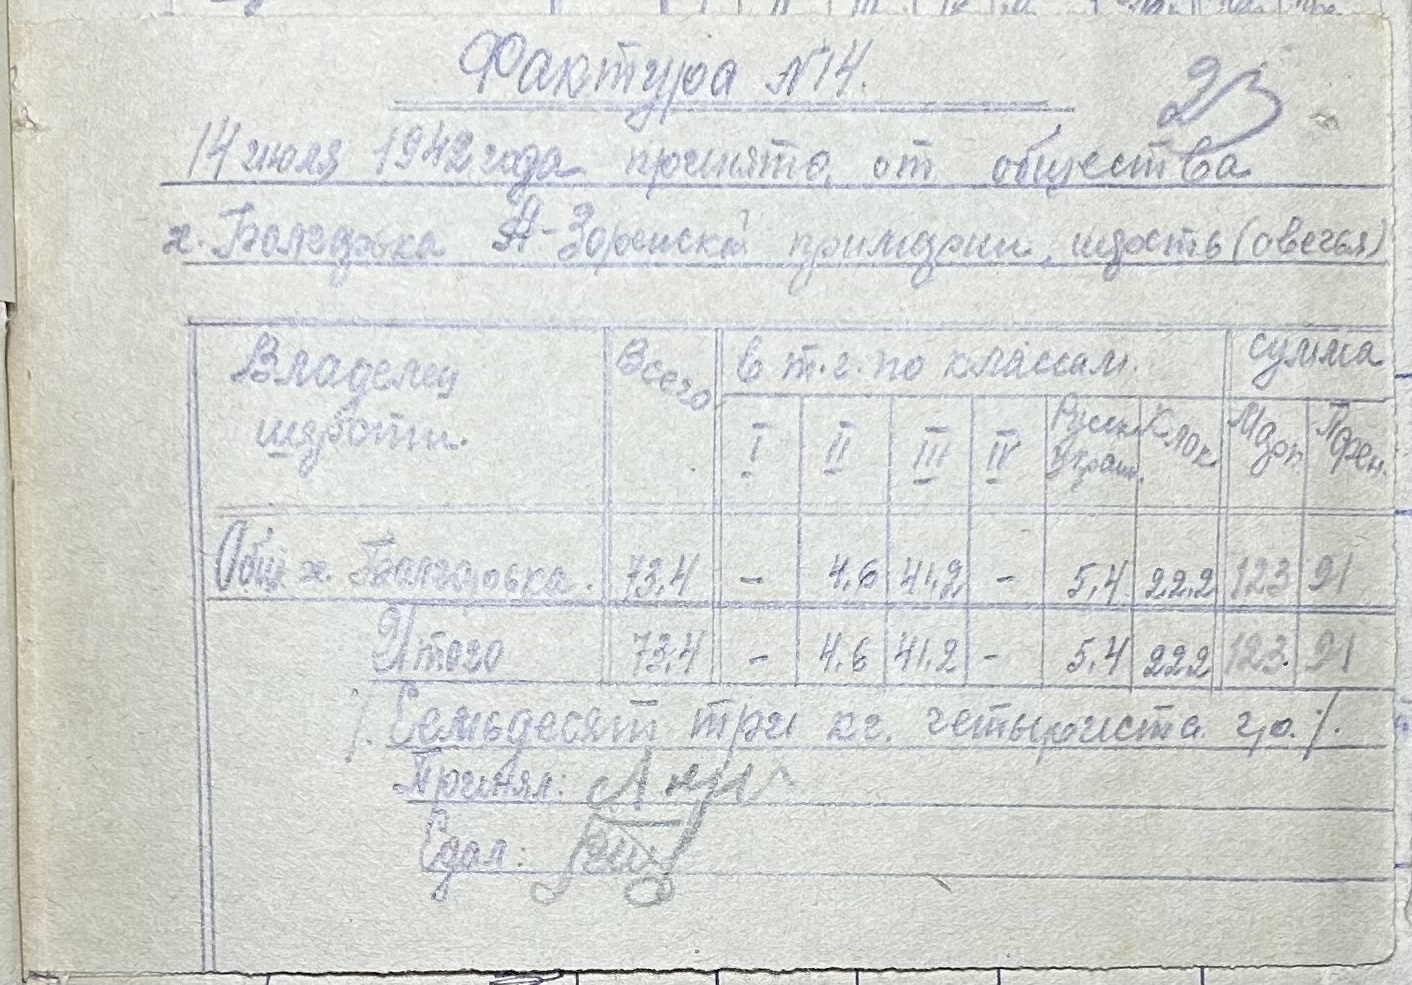 Фактура №14.
23
14 июля 1942 года принято от общества
х. Болгарька А-Зоренской примарии, шерсть (овечья)
Владелец шерсти.
Всего
в т.ч. по классам.
сумма
I II III IV Русск. Украин. Клок. Марк. Пфен.
Общ. х. Болгарька. 73,4 - 4,6 41,2 - 5,4 22,2 123 21
Итого 73,4 - 4.6 41.2 - 5.4 222 123. 21
/. Семьдесят три кг. четыриста гр. /.
Принял:
Сдал: